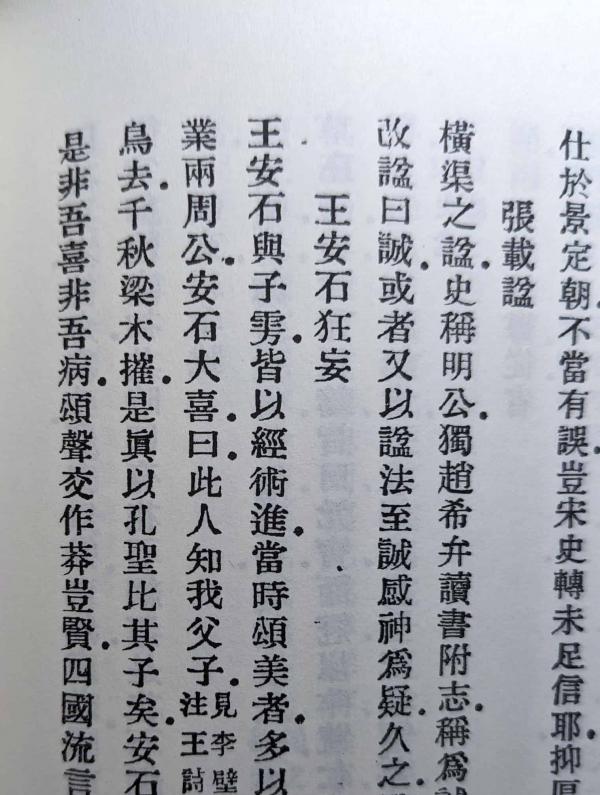 仕於景定朝。不當有誤。豈宋史轉未足信耶。抑
張載諡
橫渠之諡。史稱明公。獨趙希弁讀書附志。稱爲
改諡曰誠。或者又以諡法至誠感神爲疑。久之
王安石狂妄
王安石與子雱。皆以經術進。當時頌美者。多以
業兩周公。安石大喜。曰。此人知我父子。見李壁注王詩
鳥去。千秋梁木摧。是眞以孔聖比其子矣。安石
是非吾喜非吾病。頌聲交作莽豈賢。四國流言